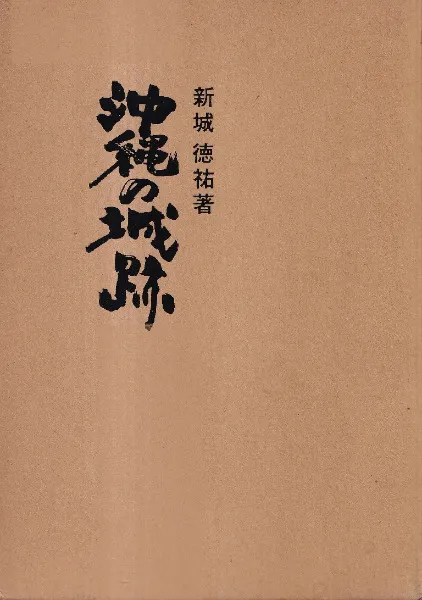 新城 徳祐著
沖縄の城跡